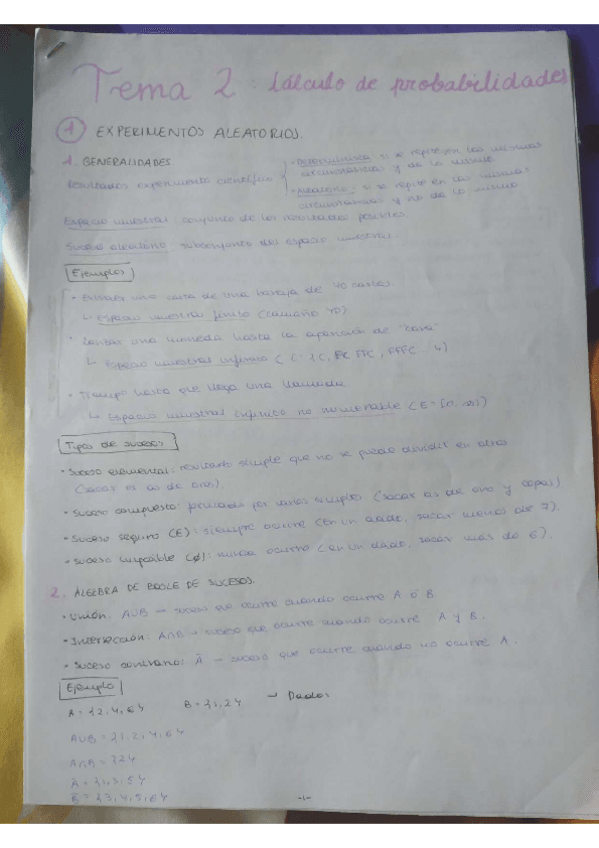 Tema 2: Cálculo de probabilidades
1 EXPERIMENTOS ALEATORIOS.
1. GENERALIDADES
Resultados experimento científico
- Determinista: si se repite en las mismas
circunstancias y da lo mismo
- Aleatorio: si se repite en las mismas
circunstancias y no da lo mismo
Espacio muestral: conjunto de los resultados posibles.
Suceso aleatorio: subconjunto del espacio muestral.
Ejemplos
• Extraer una carta de una baraja de 40 cartas.
↳ Espacio muestral finito (tamaño 40)
• Lanzar una moneda hasta la aparición de "cara"
↳ Espacio muestral infinito (E={C, FC, FFC, FFFC...})
• Tiempo hasta que llega una llamada
↳ Espacio muestral infinito no numerable (E=[0, ∞))
Tipos de sucesos
• Suceso elemental: resultado simple que no se puede dividir en otros
(sacar el as de oros).
• Suceso compuesto: formado por varios simples (sacar as de oro y copas)
• Suceso seguro (E): siempre ocurre (en un dado, sacar menos de 7).
• Suceso imposible (Ø): nunca ocurre (en un dado, sacar más de 6).
2. ÁLGEBRA DE BOOLE DE SUCESOS.
• Unión: AUB → suceso que ocurre cuando ocurre A ó B
• Intersección: A∩B → suceso que ocurre cuando ocurre A y B.
• Suceso contrario: Ā → suceso que ocurre cuando no ocurre A.
Ejemplo
A = {2,4,6} B = {1,2} → Dados
AUB = {1,2,4,6}
A∩B = {2}
Ā = {1,3,5}
B̄ = {3,4,5,6}
-1-